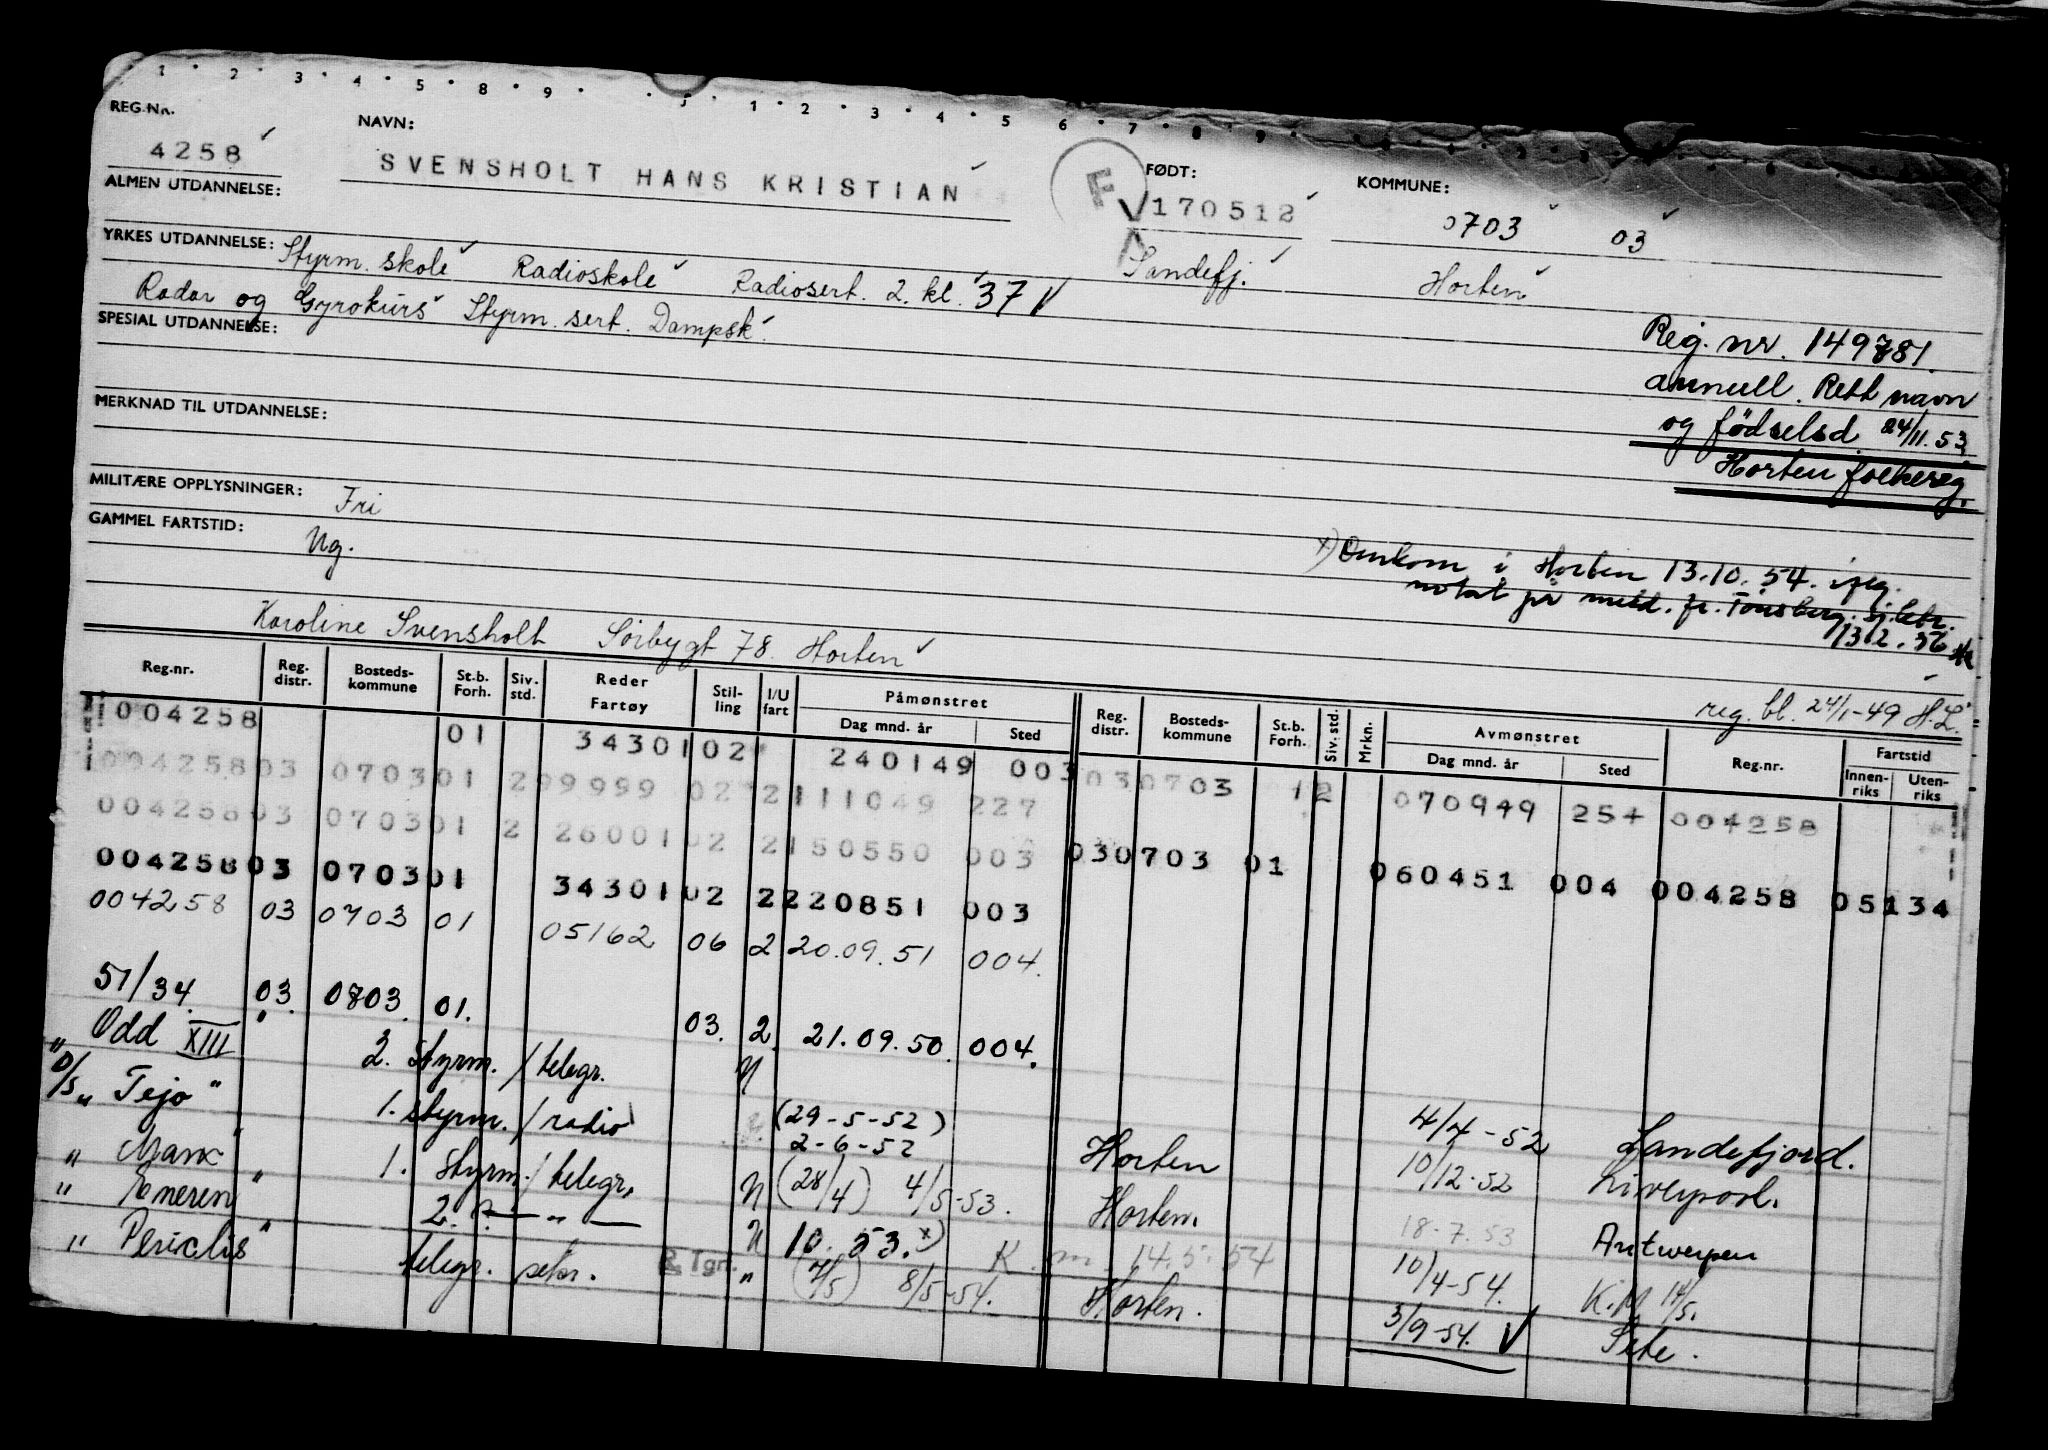 1 2 3 4 5 8 9 5 1 2 3 4 5 6 7 8 9
REG.NR. NAVN: FØDT: KOMMUNE:
4258 SVENSHOLT HANS KRISTIAN F 170512 0703 03
ALMEN UTDANNELSE:
YRKES UTDANNELSE: Styrm. skole Radioskole Radiosert. 2. kl. 37 Sandefj. Horten
Radar og Gyrokurs Styrm. sert. Dampsk.
SPESIAL UTDANNELSE:
Reg. nr. 149781.
annull. Rett navn
og födselsd. 24/11.53
Horten folkereg.
MERKNAD TIL UTDANNELSE:
MILITÆRE OPPLYSNINGER: Fri
GAMMEL FARTSTID: Ng.
x) Omkom i Horten 13.10.54. iflg.
notat på meld. fr. Tönsberg.
13.2.56
Karoline Svensholt Sörbygt 78. Horten
reg. bl. 24/1-49 H.L.
Reg.nr. Reg. distr. Bosteds-kommune St.b. Forh. Siv. std. Reder Fartøy Stil-ling I/U fart Påmønstret Dag mnd. år Sted Reg. distr. Bosteds-kommune St.b. Forh. Siv. std. Mrkn. Avmønstret Dag mnd. år Sted Reg.nr. Fartstid Innen-riks Uten-riks
004258 01 34301 02 240149 003 030703 12 070949 254 004258
004258 03 0703 01 2 99999 02 2 111049 227
004258 03 0703 01 2 26001 02 2 150550 003 030703 01 060451 004 004258 05134
004258 03 0703 01 34301 02 2 220851 003
004258 03 0703 01 05162 06 2 20.09.51 004.
51/34. 03. 0803. 01. 03. 2. 21.09.50. 004.
" Odd XIII " 2. Styrm. / telegr. U 4/4-52 Sandefjord.
D/S " Tejo " 1. styrm. / radio (29-5-52) 2-6-52 Horten 10/12-52 Liverpool.
" " 1. Styrm. / telegr. U (28/4) 4/5-53. Horten. 18-7-53 Antwerpen
" Eneren " 2. — " — U 10. 53. x) K. m. 14.5.54 10/4-54. K.M. 14/5.
" Periclis " telegr. sekr. R Tgr. " (7/5) 8/5-54. Horten. 3/9-54. Sete.